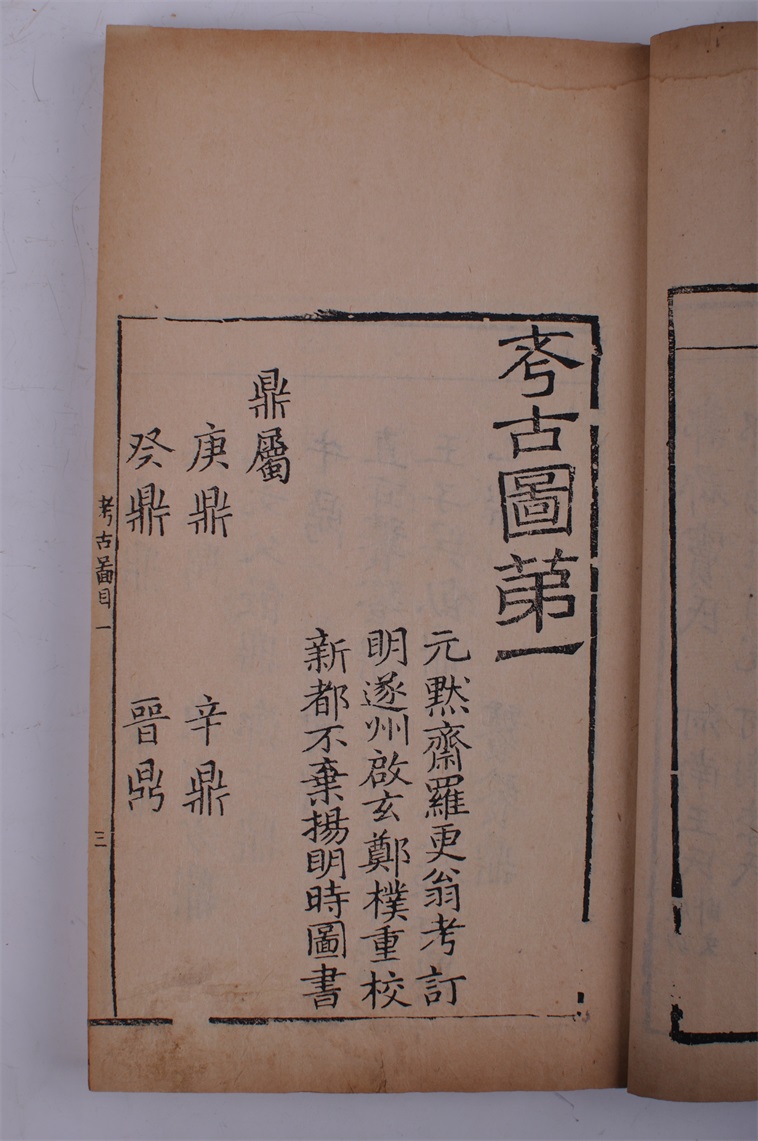 考古圖第一
元默齋羅更翁考訂
明遂州啟玄鄭樸重校
新都不棄揚明時圖書
鼎屬
庚鼎 辛鼎
癸鼎 晉鼎
考古圖目一 三